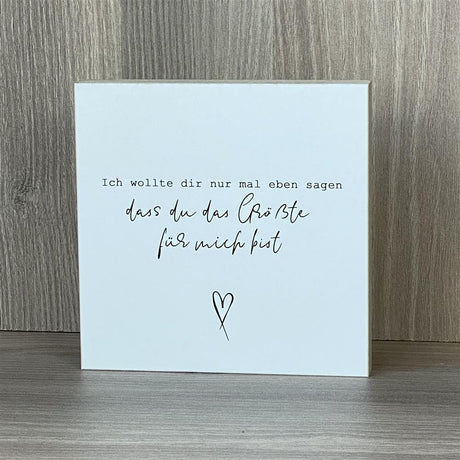 Ich wollte dir nur mal eben sagen
dass du das Größte
für mich bist